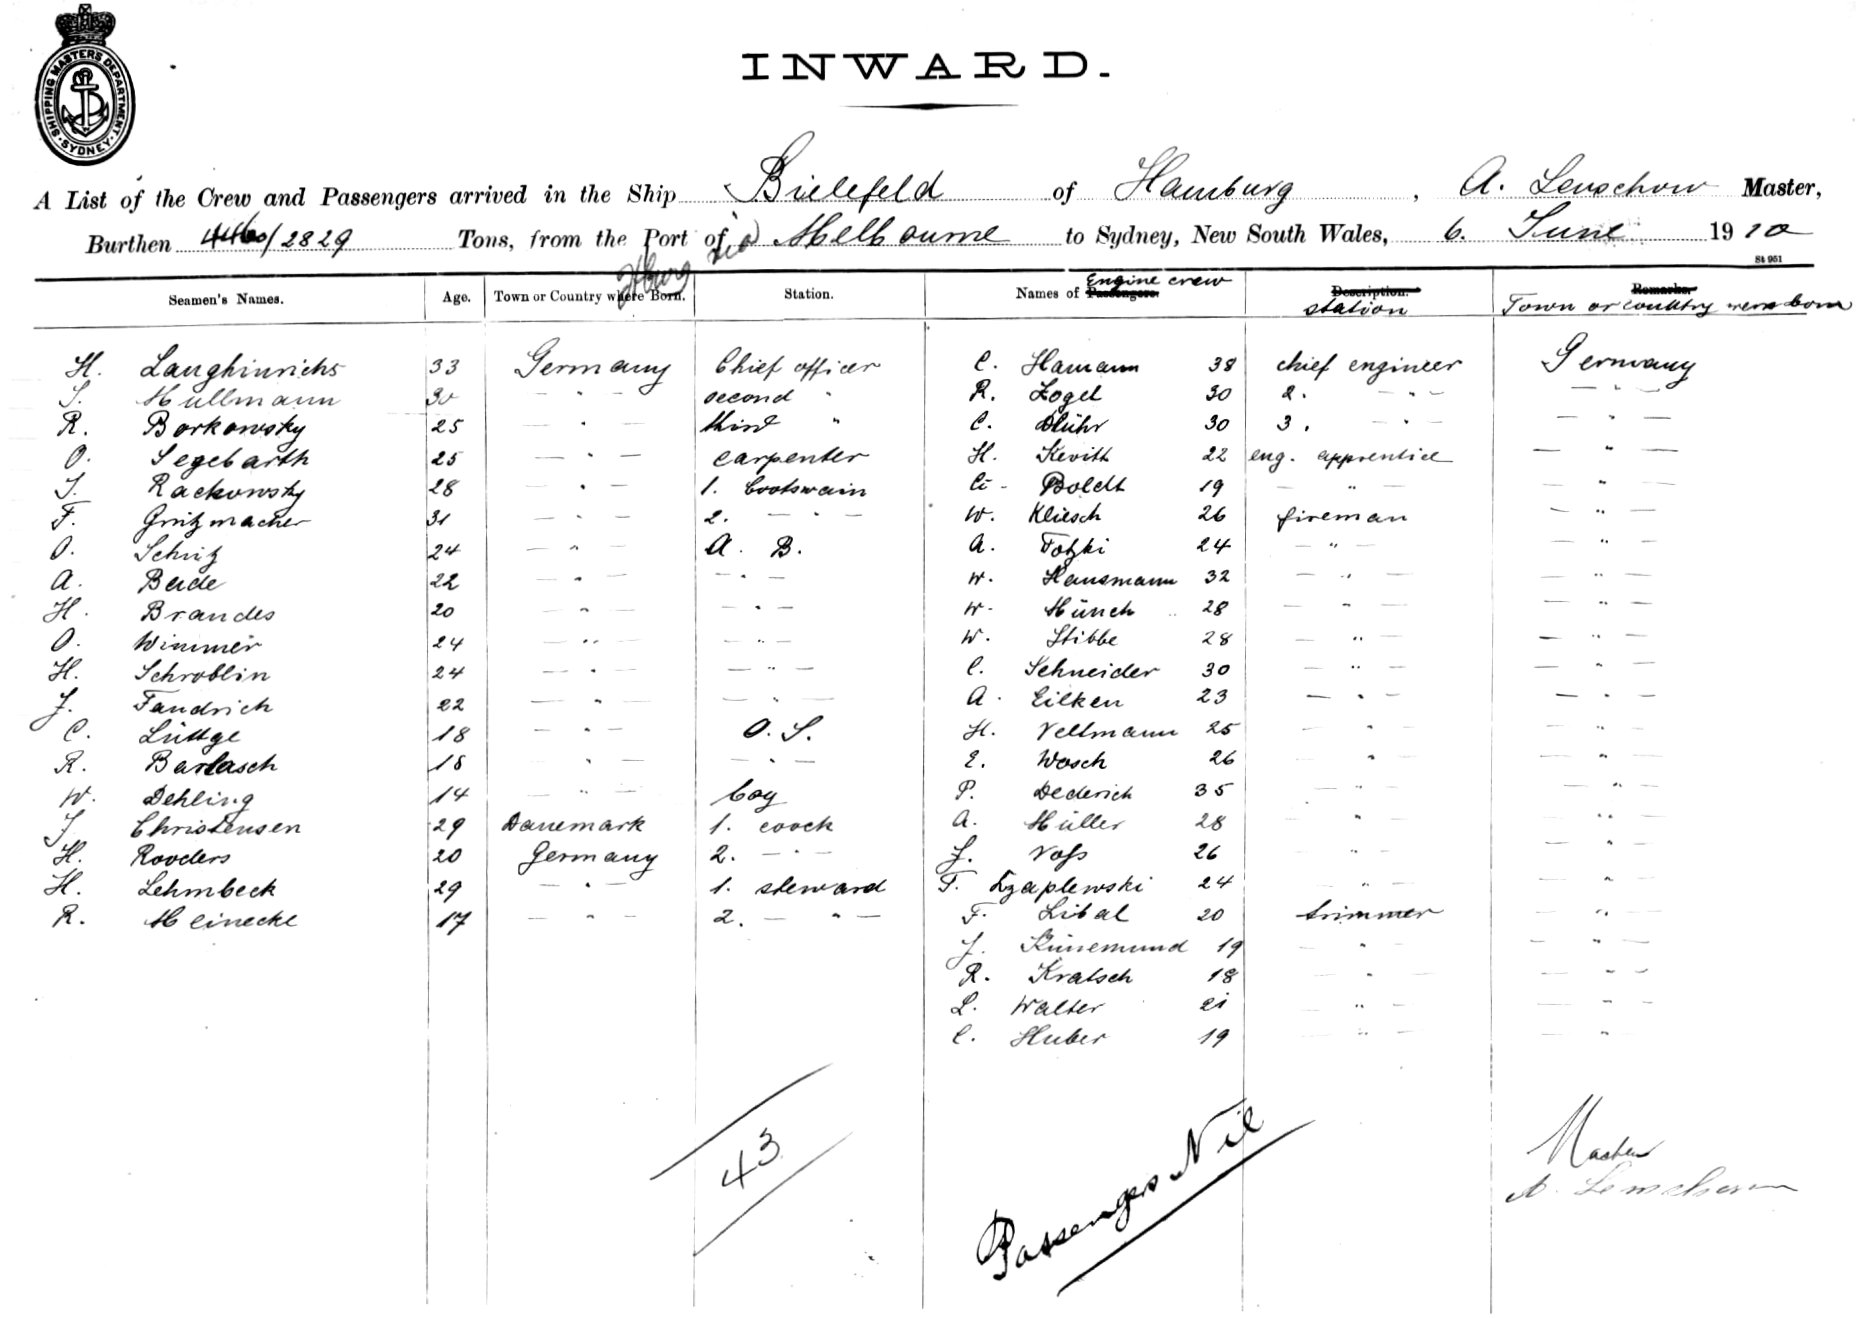 SHIPPING MASTERS DEPARTMENT
SYDNEY
INWARD.
A List of the Crew and Passengers arrived in the Ship Bielefeld of Hamburg, A. Lenschow Master,
Burthen /2829 Tons, from the Port of Hburg via Melbourne to Sydney, New South Wales, 6. June 1910
St 951
Seamen's Names. Age. Town or Country where Born. Station. Names of Passengers. Engine crew Description. station Remarks. Town or country were born
H. Langhinrichs 33 Germany Chief officer C. Hamann 38 chief engineer Germany
J. Hüllmann 30 — " — second " R. Zogel 30 2. — " — — " —
R. Borkowsky 25 — " — third " C. Dlühr 30 3. — " — — " —
O. Segebarth 25 — " — carpenter H. Kevith 22 eng. apprentice — " —
J. Rackowsky 28 — " — 1. bootswain G. Boldt 19 — " — — " —
F. Grützmacher 31 — " — 2. — " — W. Kliesch 26 fireman — " —
O. Schütz 24 — " — A. B. A. Totzki 24 — " — — " —
A. Bade 22 — " — — " — W. Hausmann 32 — " — — " —
H. Brandes 20 — " — — " — W. Münch 28 — " — — " —
O. Wimmer 24 — " — — " — W. Stibbe 28 — " — — " —
H. Schroblin 24 — " — — " — C. Schneider 30 — " — — " —
J. Fandrich 22 — " — — " — A. Eilken 23 — " — — " —
C. Lüttge 18 — " — O. S. H. Vellmann 25 — " — — " —
R. Barlasch 18 — " — — " — E. Wosch 26 — " — — " —
W. Dehling 14 — " — boy P. Dederich 35 — " — — " —
J. Christensen 29 Danemark 1. coock A. Müller 28 — " — — " —
H. Rooders 20 Germany 2. — " — J. Voß 26 — " — — " —
H. Lehmbeck 29 — " — 1. steward F. Czaplewski 24 — " — — " —
R. Meinecke 17 — " — 2. — " — F. Libal 20 trimmer — " —
J. Künemund 19 — " — — " —
R. Kratsch 18 — " — — " —
L. Walter 21 — " — — " —
C. Huber 19 — " — — " —
43
Passengers Nil
Master
A. Lenschow